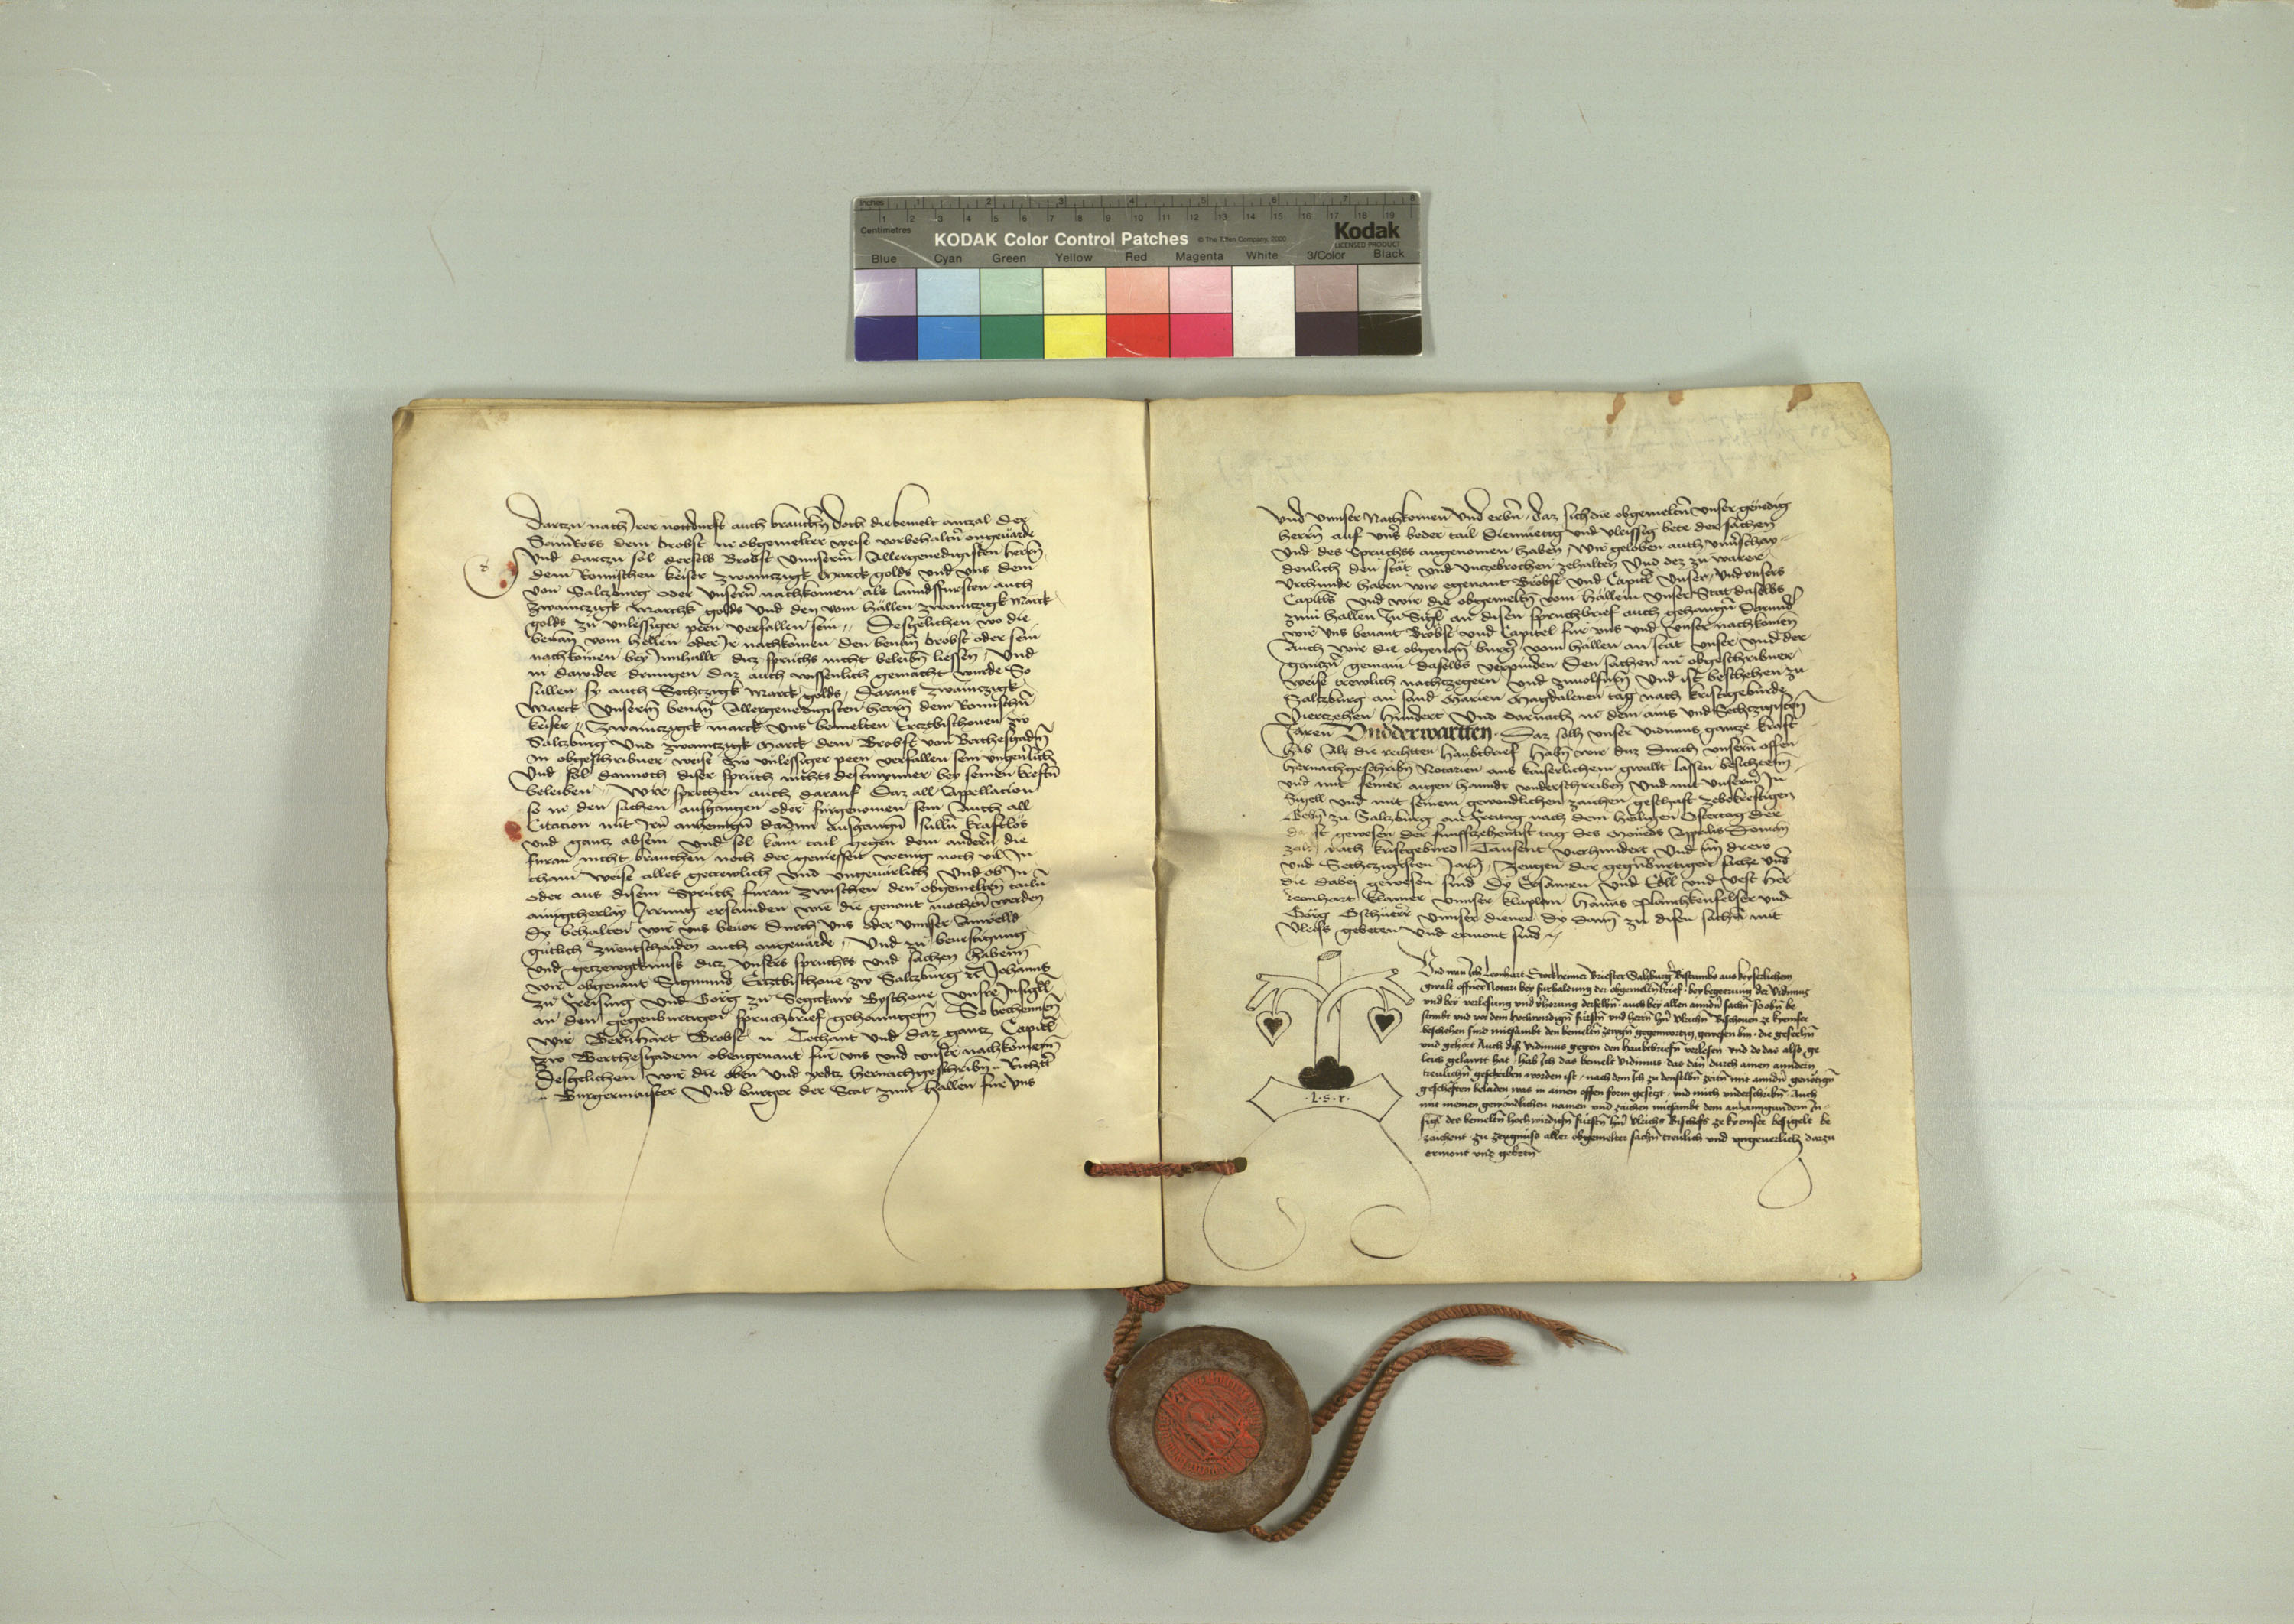 Inches 1 2 3 4 5 6 7 8
Centimetres 1 2 3 4 5 6 7 8 9 10 11 12 13 14 15 16 17 18 19
KODAK Color Control Patches © The Tiffen Company, 2000 Kodak
LICENSED PRODUCT
Blue Cyan Green Yellow Red Magenta White 3/Color Black
Dartzu nach Irer nottdurft auch brauchn̄ doch die bemelt antzal der
Sàmross dem brobst in obgemelter weise vorbehaltn̄ ongeuàrde
Und dartzu sol derselb Brobst unnserm̄ Allergenedigisten herrn̄
dem Romischen keiser zwainczigk Marck golds und uns dem
von Saltzburg oder unsern̄ nachkomen als lanndsfursten auch
zwainczigk Marckh golds und den vom hällen zwainczigk Marck
golds zu unlessiger peen verfallen sein // Desgelichen wo die
benan̄ vom hellen oder Ir nachkomen den benan̄ brobst oder sein
nachkomen bey Innhallt dicz spruchs nicht beleibn̄ liessen / Und
in dawider drungen daz auch wissenlich gemacht wurde So
sullen sy auch Sechczigk Marck golds / daraus zwainczigk
Marck unserm̄ benan̄ Allergenedigisten herrn̄ dem Romischn̄
keiser // Zwainczigck marck uns bemelten Ercztbischouen zw
Salczburg Und zwainczigk Marck dem Brobst von Berthesgadn̄
in obgeschribner weise zw unlessiger peen verfallen sein ungeuerlich
Und sol dannoch diser spruch nichts destmynner bey seinen kreftn̄
beleiben // Wir sprechen auch darauf Daz all Appellacion
so in den sachen ausgangen oder furgenomen sein Auch all
Citacion mit Irn̄ anhenngn̄ darInn Ausgangn̄ sulln̄ kraftlos
und gantz absein und sol kain tail gegen dem andern̄ die
furan nicht brauchen noch der geniessen wenig noch vil In
chain weise alles getrewlich und ungeuàrlich Und ob In
oder aus disem Spruch furan zwischen den obgemelten tailn̄
ainigcherlay Irrung erstunden wie die genant mochten werden
dy behalten wir uns beuor Durch uns oder unnser Anwelld
gutlich zuentschaiden auch angeuàrde / Und zu beuestigung
und geczewgknuss dicz unsers spruchs und sachen Haben
wir obgenant Sigmund Ercztbischoue zw Salczburg &c Johanns
zu Freising und Görg zu Segckaw Byschoue unsre Insigll
an den gegenburtigen spruchbrief gehanngen So bechennen
wir Bernhart Brobst N Techant und daz gantz Capitl
zw Berthesgadem obengenant fur uns und unser nachkomem
Desgelichen wir die oben und yedtz hernachgeschribn̄ N Richtter
N Burgermaister Und burger der Stat zum Hallen für uns
und unnser Nachkomen und erbn̄ / daz sich die obgemeltn̄ unser genedig
herrn̄ auf uns beder tail Diemüetig und vleissig bete der sachen
und des Spruchss angenomen haben / Wir geloben auch unuerschay=
denlich den stat und unczebrochen zehalten Und dez zu warer
urchunde haben wir egenant Brobst und Capitl unser / und unsers
Capitls und wir die obgemeltn̄ vom hällein unser Stat daselbs
zum hallen In Sigl an disen spruchbrief auch gehangn̄ darund
wir uns benant Bröbst und Capitel für uns und unser nachkomen
Auch wir die obgenan̄ burḡ vom hällen an stat unser und der
gantzn̄ gemain daselbs verpinden Den sachen in obgeschribner
weise trewlich nachczegeen und zuuolfurn̄ Und ist beschehen zu
Salczburg an sand Marien Magdalenen tag nach kristigeburde
Vierczehen hundert Und darnach in dem ains und Sechczigisten
Jaren Undderwartten. Daz solh unser vidimus gantze kraft
hab Als die rechtten haubtbrief Habn̄ wir daz durch unsern̄ offen
hernachgeschribn̄ Notarien aus kaiserlichem gwallt lassen besichten
und mit seiner aigen hanndt underschreiben Und mit unserm̄ In
Sigell und mit seinem gewondlichen zaichen geschaft zebekreftigen
Gebn̄ zu Salczburg am Freitag nach dem heiligen Ostertag der
da ist gewesen der funffczehennist tag des Moneds Applis Deman
zalt nach kristgeburd Tausent vierhundert und Im drew
und Sechczigisten Jarn̄ / Zeugen der gegenburtiger sache und
die dabej gewesen sind Dy Ersamen und Edll und vest her
Leonhart klamer unnser kaplan Hanns planckenfelser und
Görg Gschuerr unnser diener dy dann zu disen sachn̄ mit
vleiss gebeten und ermont sind //
Und wan Ich Leonhart Stockhamer Briester Salczburḡ Bistumbs aus keyserlichem
gwalt offner Notari bey furhaldung der obgemelten brief · bey begerung der Vidimus
und bey verlesung und verhorung derselbn̄ · auch bey allen anndn̄ sachn̄ · so obn̄ be
stimbt und vor dem hochwirdign̄ fürstn̄ und herrn̄ hn̄ Ulrichn̄ Bischouen ze kyemsee
beschehen sind mitsambt den bemeltn̄ zeugn̄ gegenwortig gewesen bin · die gesechn̄
und gehort Auch diß vidimus gegen den haubtbriefn̄ verlesen und do das also ge
leich gelautt hat / hab Ich das bemelt vidimus das dan̄ durch ainen anndern
treulichn̄ geschriben worden ist / nach dem Ich zu denselbn̄ zeitn̄ mit anndn̄ genötign̄
gescheften beladen was in ainen offen form gesetzt · und mich underschribn̄ · Auch
mit meinen gewöndlichen namen und zaichen mitsambt dem anhanngundem In=
sigl des bemeltn̄ hochwirdign̄ fürstn̄ hn̄ Ulrichs Bischofs ze kyemsee besigelt be
zaichent · zu zeugniss aller obgemelter sachn̄ treulich und ungeuerlich darzu
ermont und gebetn̄
· L · S · r ·